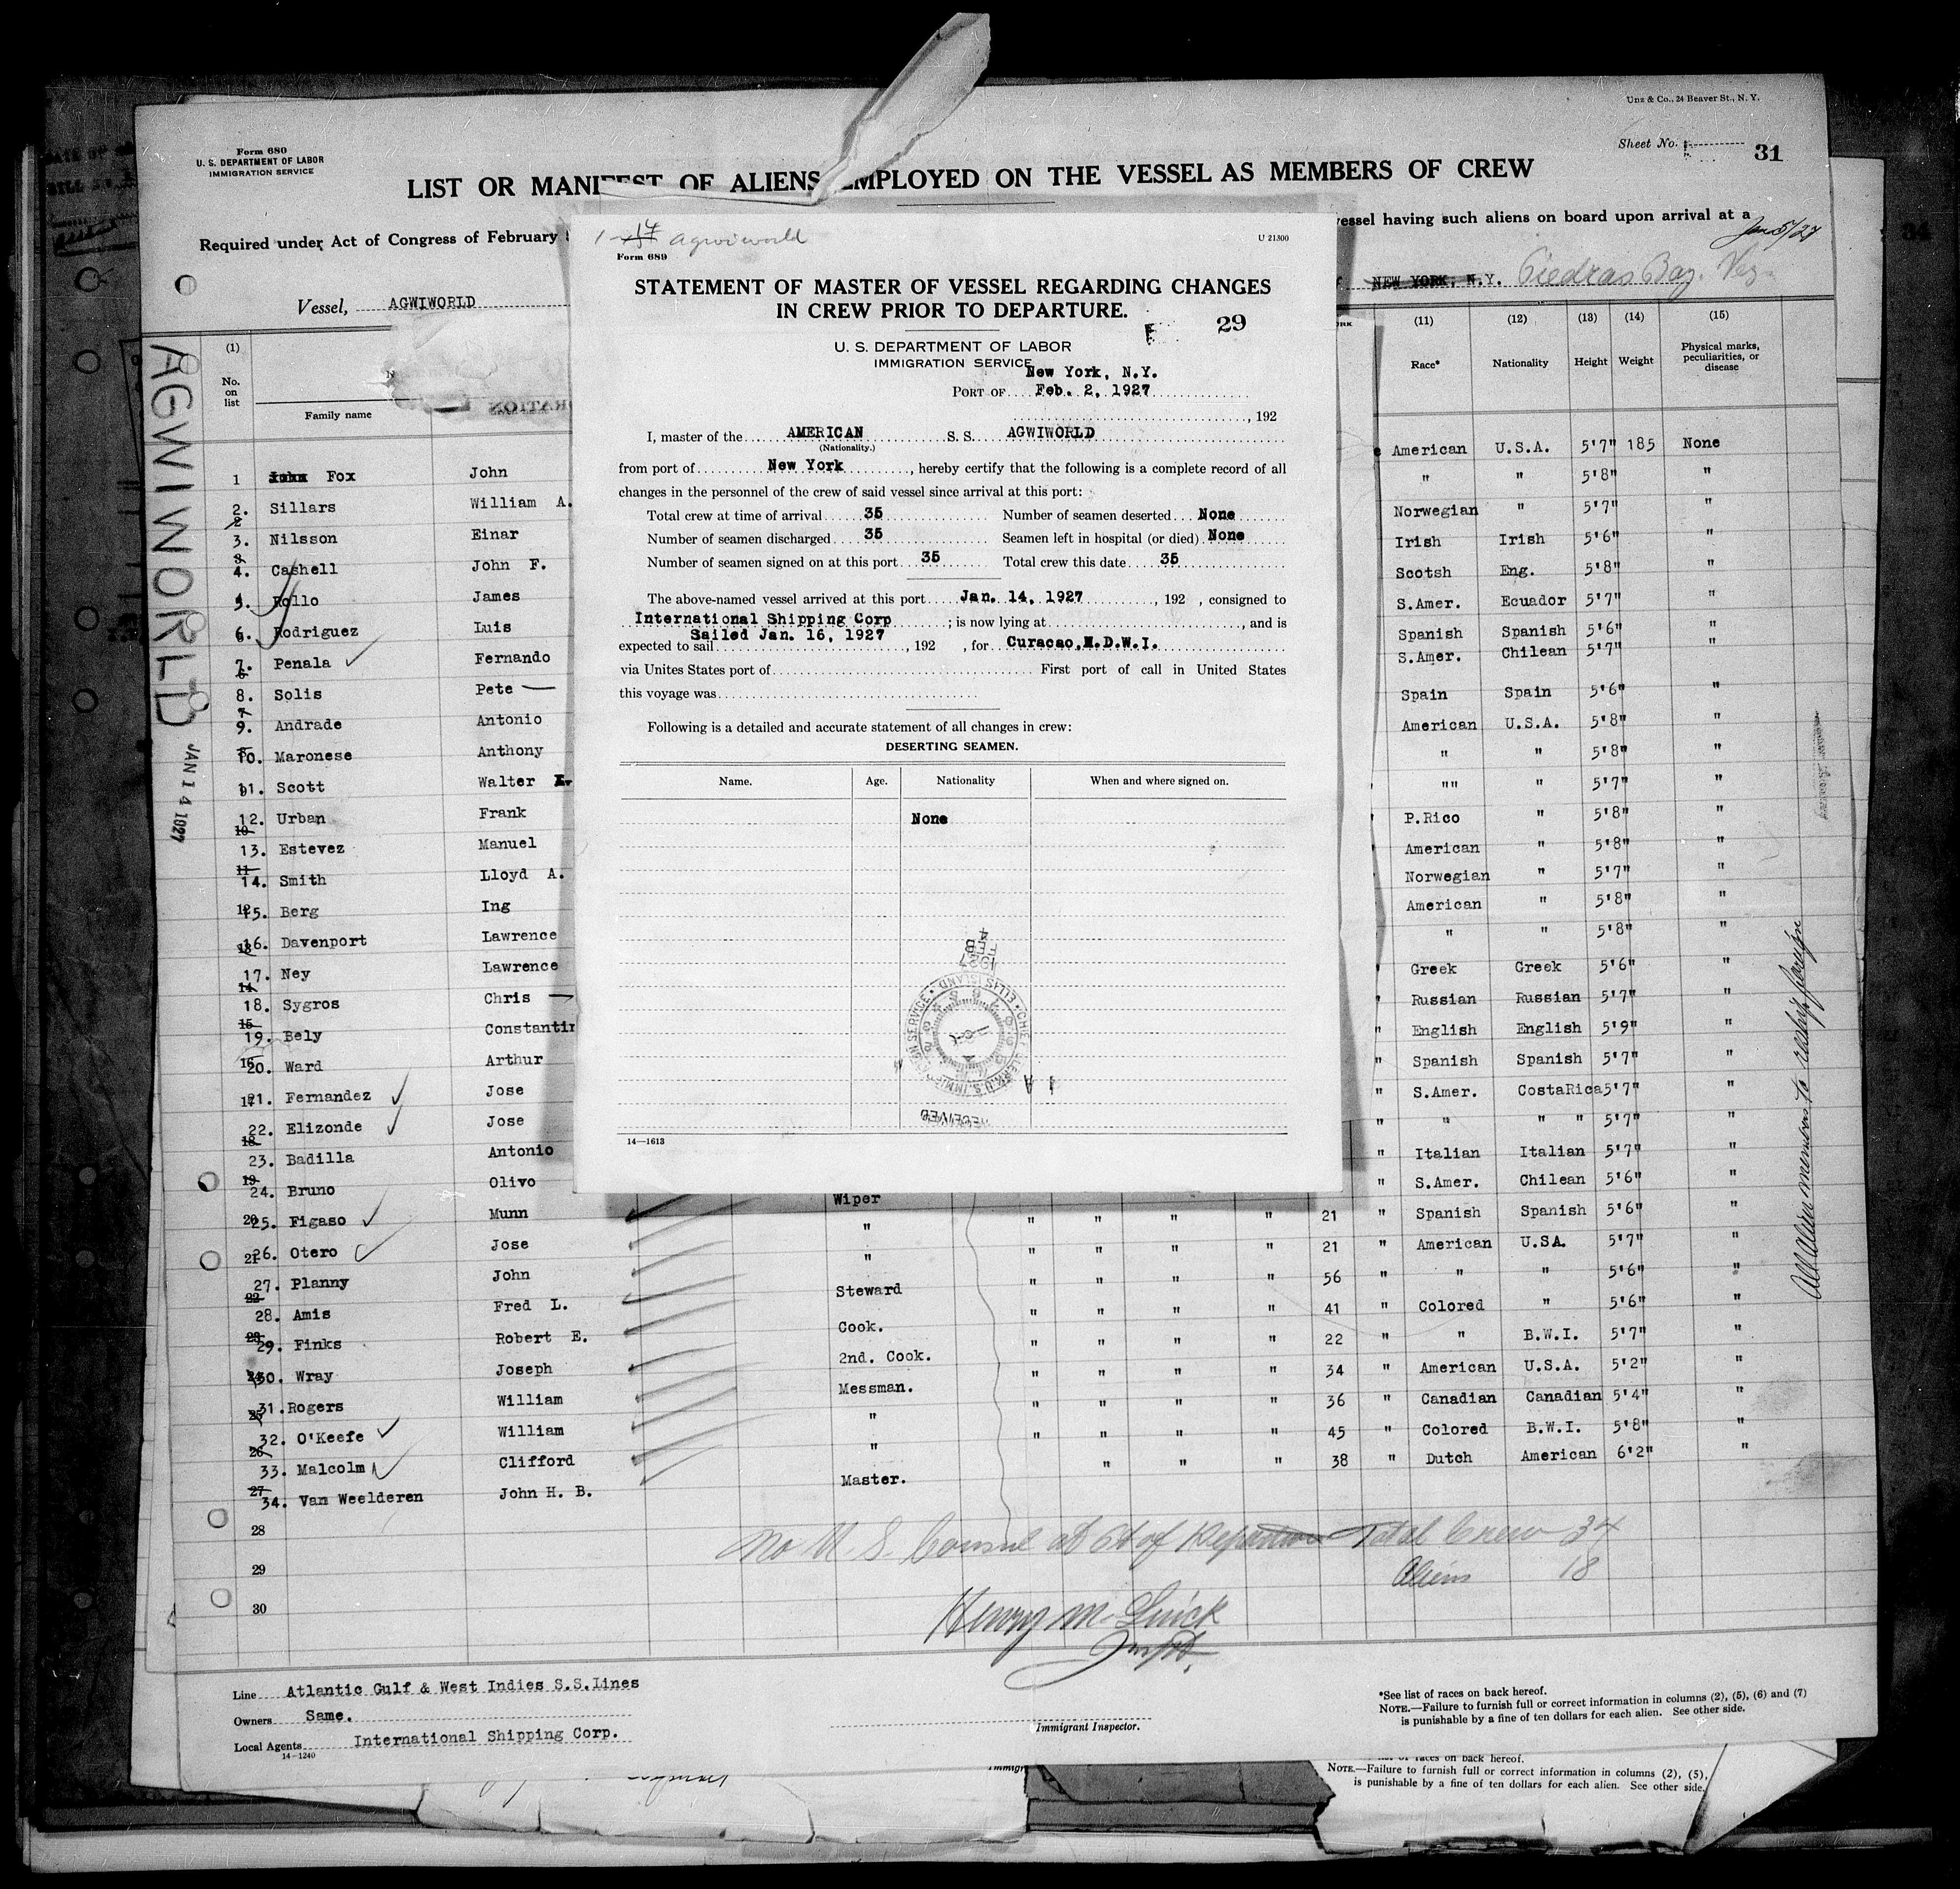 Unz & Co., 24 Beaver St., N. Y.
Form 680
U. S. DEPARTMENT OF LABOR
IMMIGRATION SERVICE
Sheet No. 31
LIST OR MANIFEST OF ALIENS EMPLOYED ON THE VESSEL AS MEMBERS OF CREW
Required under Act of Congress of February
vessel having such aliens on board upon arrival at a
Jan 5/27
Vessel, AGWIWORLD
NEW YORK, N.Y. Piedras Bay.
AGWIWORLD
JAN 14 1927
1- 14 Agwiworld
U 21300
Form 689
STATEMENT OF MASTER OF VESSEL REGARDING CHANGES
IN CREW PRIOR TO DEPARTURE.
29
U. S. DEPARTMENT OF LABOR
IMMIGRATION SERVICE
New York, N.Y.
PORT OF Feb. 2, 1927
, 192
I, master of the AMERICAN S. S. AGWIWORLD
(Nationality.)
from port of New York, hereby certify that the following is a complete record of all
changes in the personnel of the crew of said vessel since arrival at this port:
Total crew at time of arrival 35 Number of seamen deserted None
Number of seamen discharged 35 Seamen left in hospital (or died) None
Number of seamen signed on at this port 35 Total crew this date 35
The above-named vessel arrived at this port Jan. 14, 1927, 192 , consigned to
International Shipping Corp ; is now lying at , and is
expected to sail Sailed Jan. 16, 1927, 192 , for Curacao,N.D.W.I.
via Unites States port of First port of call in United States
this voyage was
Following is a detailed and accurate statement of all changes in crew:
DESERTING SEAMEN.
Name. Age. Nationality When and where signed on.
None
1927
FEB
4
CHIEF CLERK U.S. IMMIGRATION SERVICE ELLIS ISLAND
RECEIVED
14—1613
(1) No. on list
Family name
(11) Race*
(12) Nationality
(13) Height
(14) Weight
(15) Physical marks, peculiarities, or disease
1 Fox John
2. Sillars William A.
3. Nilsson Einar
4. Cashell John F.
5. Rollo James
6. Rodriguez Luis
7. Penala Fernando
8. Solis Pete
9. Andrade Antonio
10. Maronese Anthony
11. Scott Walter
12. Urban Frank
13. Estevez Manuel
14. Smith Lloyd A.
15. Berg Ing
16. Davenport Lawrence
17. Ney Lawrence
18. Sygros Chris
19. Bely Constantin
20. Ward Arthur
21. Fernandez Jose
22. Elizonde Jose
23. Badilla Antonio
24. Bruno Olivo
25. Figaso Munn
26. Otero Jose
27. Planny John
28. Amis Fred L.
29. Finks Robert E.
30. Wray Joseph
31. Rogers William
32. O'Keefe William
33. Malcolm Clifford
34. Van Weelderen John H. B.
28
29
30
American U.S.A. 5'7" 185 None
" " 5'8" "
Norwegian " 5'7" "
Irish Irish 5'6" "
Scotsh Eng. 5'8" "
S.Amer. Ecuador 5'7" "
Spanish Spanish 5'6" "
S.Amer. Chilean 5'7" "
Spain Spain 5'6" "
American U.S.A. 5'8" "
" " 5'8" "
"" " 5'7" "
P.Rico " 5'8" "
American " 5'8" "
Norwegian " 5'7" "
American " 5'8" "
" " 5'8" "
Greek Greek 5'6" "
" Russian Russian 5'7" "
" English English 5'9" "
" Spanish Spanish 5'7" "
" S.Amer. CostaRica 5'7" "
" " " " 5'7" "
" Italian Italian 5'7" "
" S.Amer. Chilean 5'6" "
Wiper
" " " " " 21 " Spanish Spanish 5'6" "
" " " " " 21 " American U.S.A. 5'7" "
Steward " " " " 56 " " " 5'6" "
Cook. " " " " 41 " Colored " 5'6" "
2nd. Cook. " " " " 22 " " B.W.I. 5'7" "
Messman. " " " " 34 " American U.S.A. 5'2" "
" " " " " 36 " Canadian Canadian 5'4" "
" " " " " 45 " Colored B.W.I. 5'8" "
Master. " " " 38 " Dutch American 6'2" "
All alien members to reship foreign
No U. S. Consul at Pt of Departure Total Crew 34
Aliens 18
Henry M.
Inspt.
Line Atlantic Gulf & West Indies S.S.Lines
Owners Same.
Local Agents International Shipping Corp.
14—1240
Immigrant Inspector.
*See list of races on back hereof.
NOTE.—Failure to furnish full or correct information in columns (2), (5), (6) and (7)
is punishable by a fine of ten dollars for each alien. See other side.
races on back hereof.
NOTE.—Failure to furnish full or correct information in columns (2), (5),
is punishable by a fine of ten dollars for each alien. See other side.
34